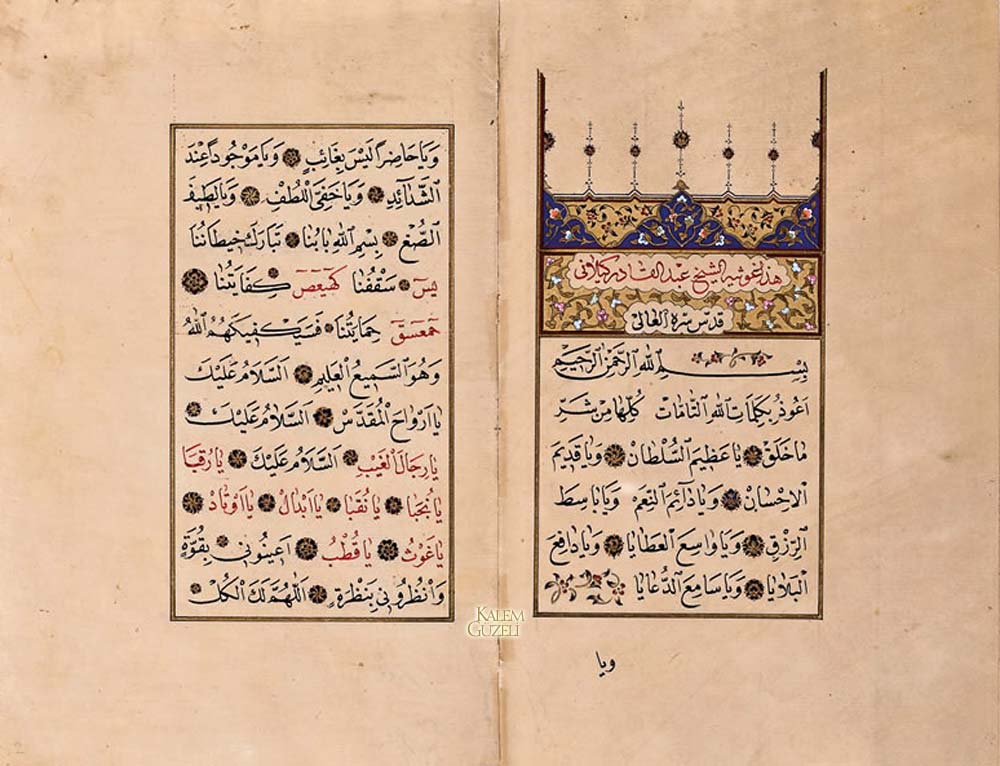 هذا غوثيه الشيخ عبد القادر كيلانى
قدّس سرّه العالى
بِسْمِ اللهِ الرَّحْمٰنِ الرَّحِيمِ
اَعُوذُ بِكَلِمَاتِ اللهِ التَّامَّاتِ كُلِّهَا مِنْ شَرِّ
مَا خَلَقَ يَا عَظِيمَ السُّلْطَانِ وَيَا قَدِيمَ
الْاِحْسَانِ وَيَا دَائِمَ النِّعَمِ وَيَا بَاسِطَ
الرِّزْقِ وَيَا وَاسِعَ الْعَطَايَا وَيَا دَافِعَ
الْبَلَايَا وَيَا سَامِعَ الدُّعَايَا
ويا
وَيَا حَاضِرًا لَيْسَ بِغَائِبٍ وَيَا مَوْجُودًا عِنْدَ
الشَّدَائِدِ وَيَا خَفِيَّ اللُّطْفِ وَيَا لَطِيفَ
الصُّنْعِ بِسْمِ اللهِ بَابُنَا تَبَارَكَ حِيطَانُنَا
يٰسٓ سَقْفُنَا كٓهٰيٰعٓصٓ كِفَايَتُنَا
حٰمٓعٓسٓقٓ حِمَايَتُنَا فَسَيَكْفِيكَهُمُ اللهُ
وَهُوَ السَّمِيعُ الْعَلِيمُ اَلسَّلَامُ عَلَيْكَ
يَا اَرْوَاحَ الْمُقَدَّسِ اَلسَّلَامُ عَلَيْكَ
يَا رِجَالَ الْغَيْبِ اَلسَّلَامُ عَلَيْكَ يَا رُقَبَا
يَا نُجَبَا يَا نُقَبَا يَا اَبْدَالُ يَا اَوْتَادُ
يَا غَوْثُ يَا قُطْبُ اَعِينُونِى بِقُوَّةٍ
وَانْظُرُونِى بِنَظْرَةٍ اَللّٰهُمَّ لَكَ الْكُلُّ
KALEM
GÜZELİ